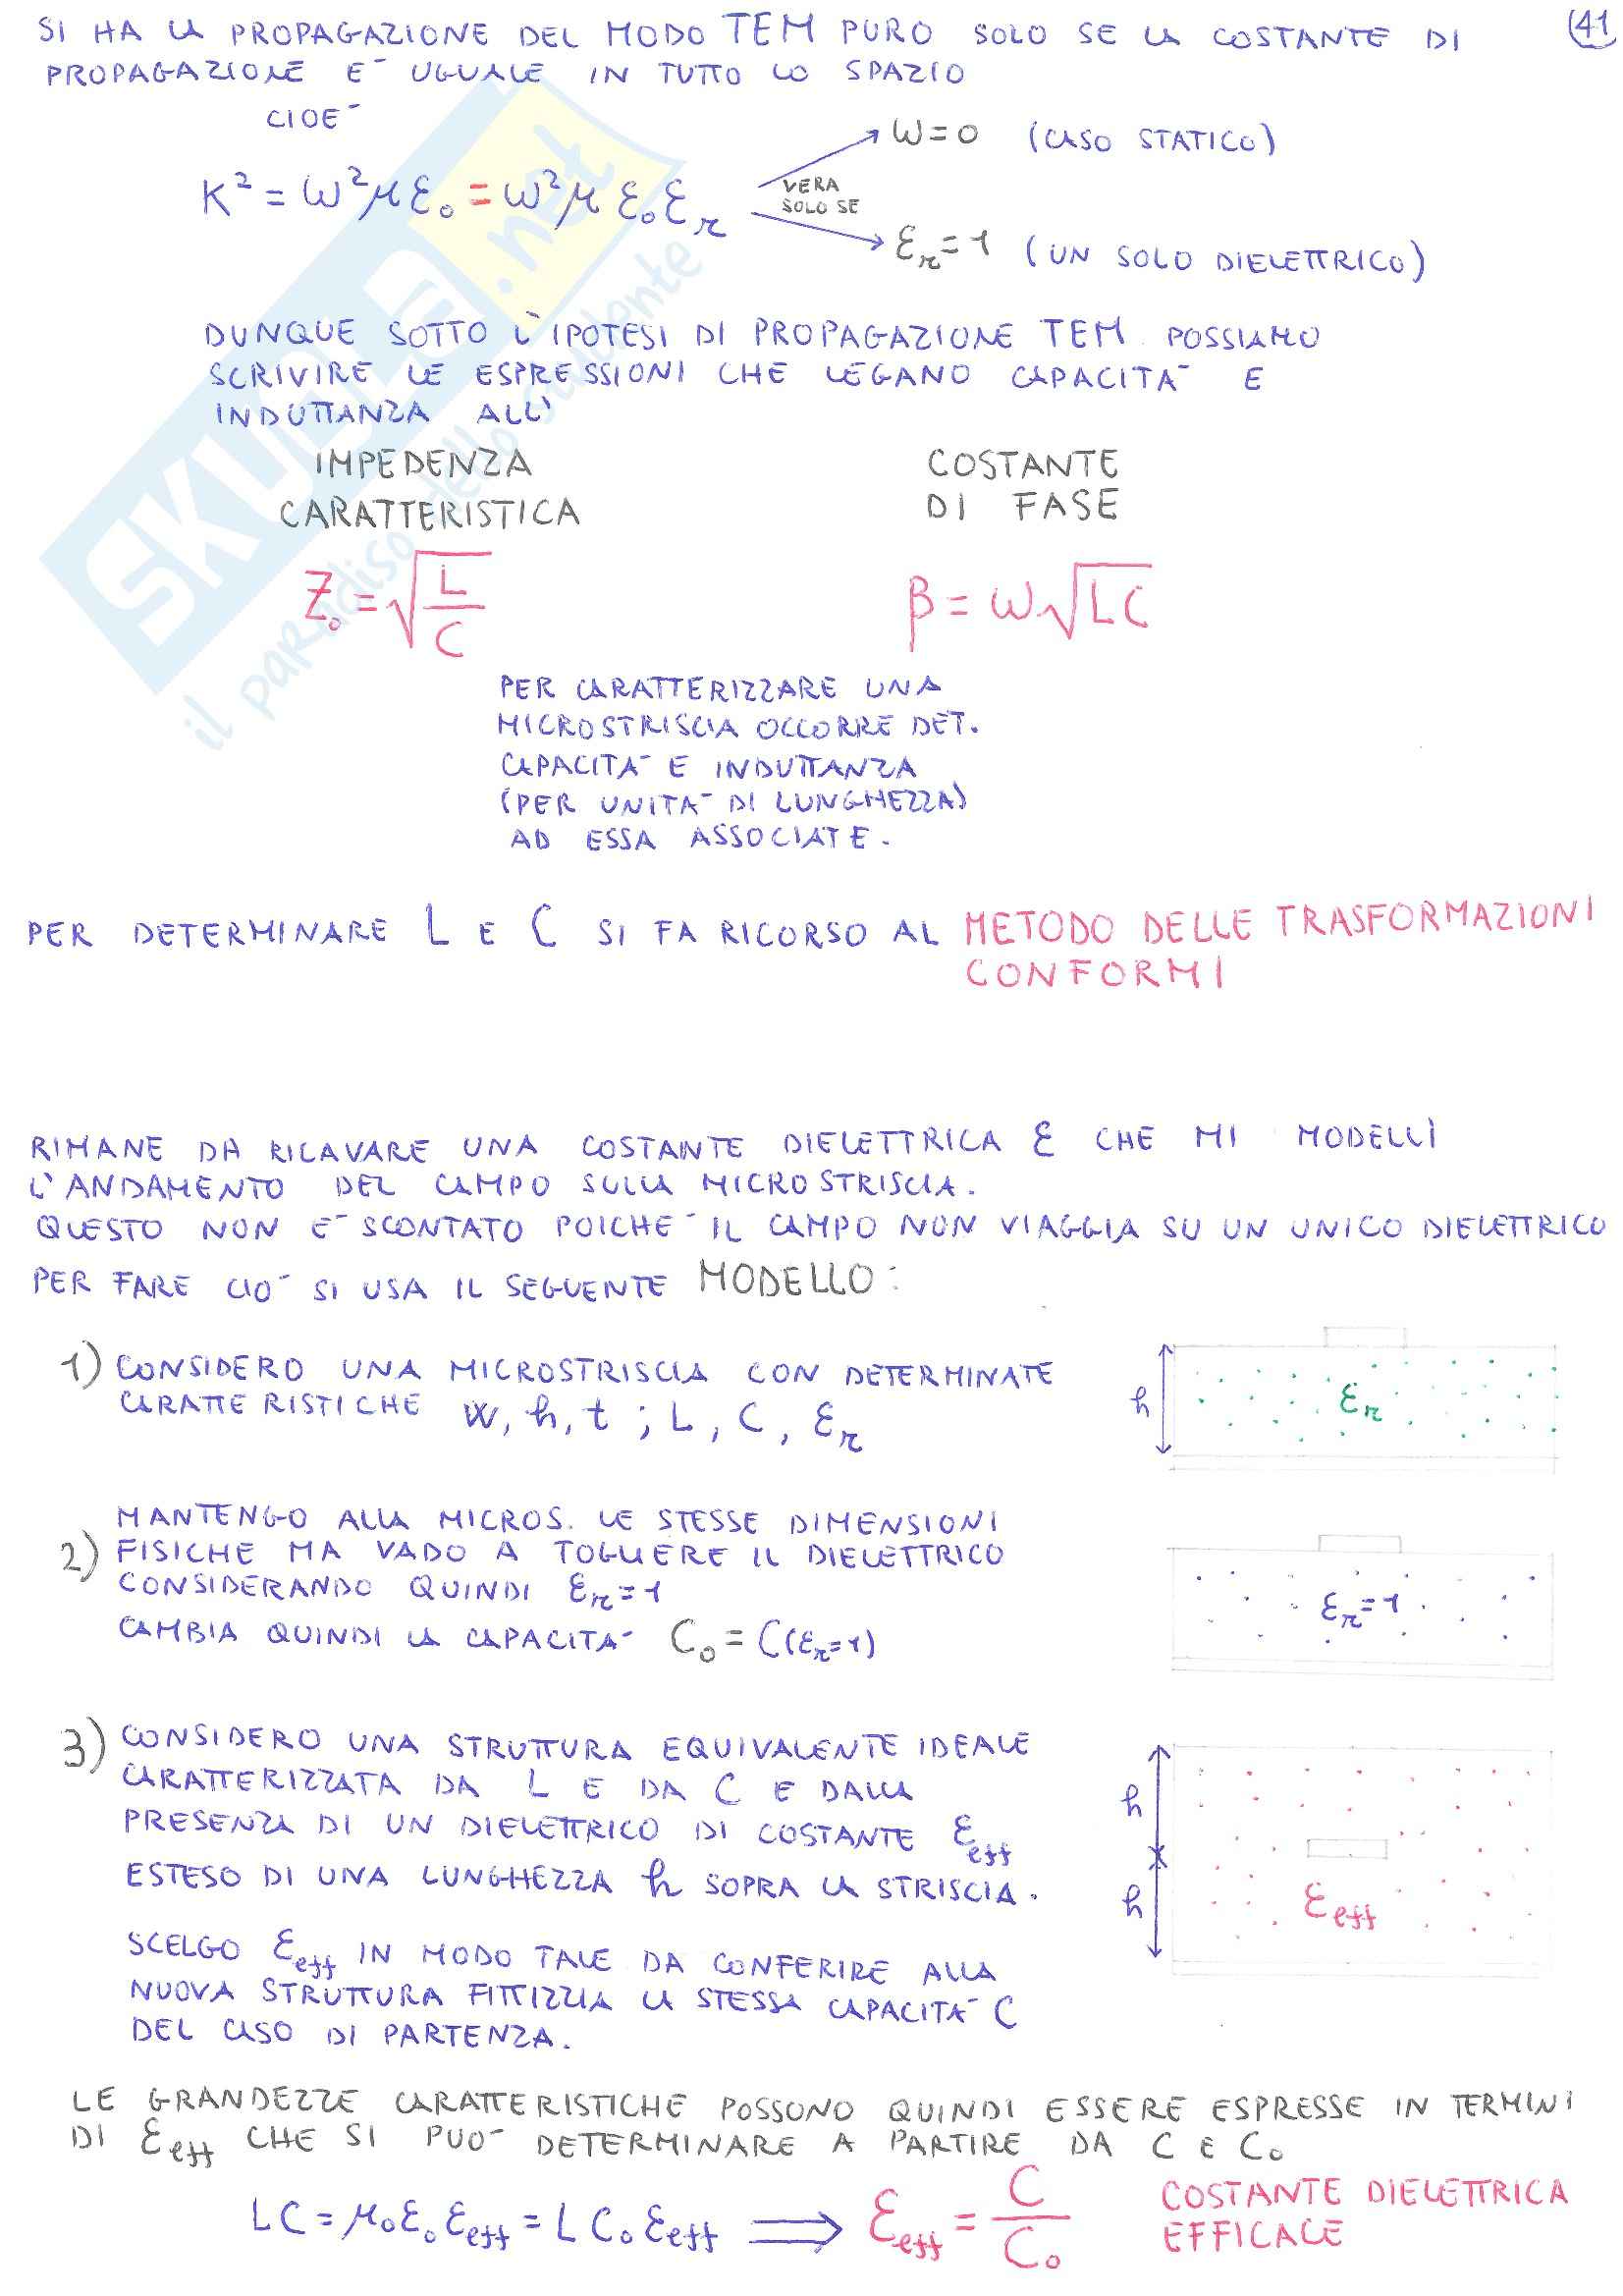 (41
SI HA LA PROPAGAZIONE DEL MODO TEM PURO SOLO SE LA COSTANTE DI
PROPAGAZIONE E' UGUALE IN TUTTO LO SPAZIO
CIOE'
ω=0 (CASO STATICO)
K² = ω²με₀ = ω²με₀εr
VERA
SOLO SE
εr=1 (UN SOLO DIELETTRICO)
DUNQUE SOTTO L'IPOTESI DI PROPAGAZIONE TEM POSSIAMO
SCRIVIRE LE ESPRESSIONI CHE LEGANO CAPACITA' E
INDUTTANZA ALL'
IMPEDENZA
CARATTERISTICA
COSTANTE
DI FASE
Z₀ = √(L/C)
β = ω√LC
PER CARATTERIZZARE UNA
MICROSTRISCIA OCCORRE DET.
CAPACITA' E INDUTTANZA
(PER UNITA' DI LUNGHEZZA)
AD ESSA ASSOCIATE.
PER DETERMINARE L E C SI FA RICORSO AL METODO DELLE TRASFORMAZIONI
CONFORMI
RIMANE DA RICAVARE UNA COSTANTE DIELETTRICA ε CHE MI MODELLÌ
L'ANDAMENTO DEL CAMPO SULLA MICROSTRISCIA.
QUESTO NON E' SCONTATO POICHE' IL CAMPO NON VIAGGIA SU UN UNICO DIELETTRICO
PER FARE CIO' SI USA IL SEGUENTE MODELLO:
1) CONSIDERO UNA MICROSTRISCIA CON DETERMINATE
CARATTERISTICHE W, h, t ; L, C, εr
h
εr
MANTENGO ALLA MICROS. LE STESSE DIMENSIONI
2) FISICHE MA VADO A TOGLIERE IL DIELETTRICO
CONSIDERANDO QUINDI εr=1
CAMBIA QUINDI LA CAPACITA' C₀ = C(εr=1)
εr=1
3) CONSIDERO UNA STRUTTURA EQUIVALENTE IDEALE
CARATTERIZZATA DA L E DA C E DALLA
PRESENZA DI UN DIELETTRICO DI COSTANTE εeff
ESTESO DI UNA LUNGHEZZA h SOPRA LA STRISCIA.
h
h
εeff
SCELGO εeff IN MODO TALE DA CONFERIRE ALLA
NUOVA STRUTTURA FITTIZZIA LA STESSA CAPACITA' C
DEL CASO DI PARTENZA.
LE GRANDEZZE CARATTERISTICHE POSSONO QUINDI ESSERE ESPRESSE IN TERMINI
DI εeff CHE SI PUO' DETERMINARE A PARTIRE DA C E C₀
LC = μ₀ε₀εeff = LC₀εeff ⟹ εeff = C/C₀
COSTANTE DIELETTRICA
EFFICACE
SKUOLA.net
il paradiso dello studente